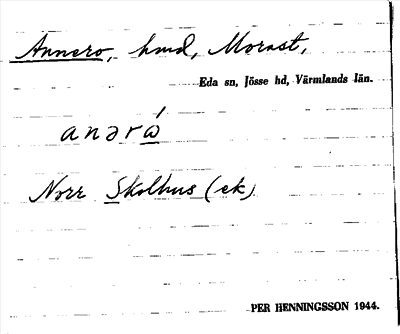 Annero, hmd, Morast,
Eda sn, Jösse hd, Värmlands län.
anərẃ
Norr Skolhus (ek)
PER HENNINGSSON 1944.